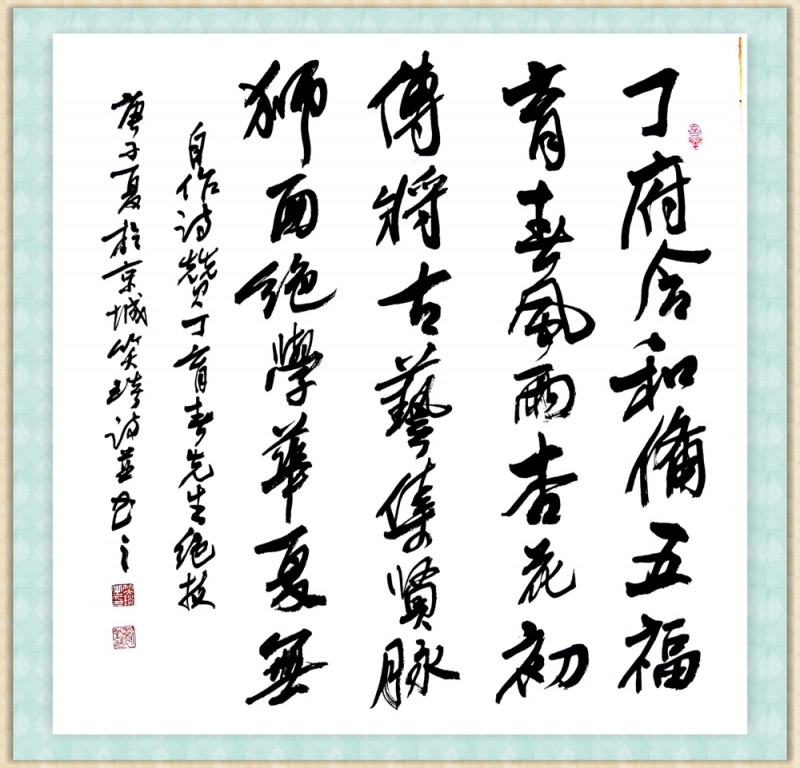 丁府含和備五福
育春風雨杏花初
傳將古藝集賢脉
狮面绝學華夏無
自作诗赞丁育春先生绝技
庚子夏於京城笑琦诗並书之